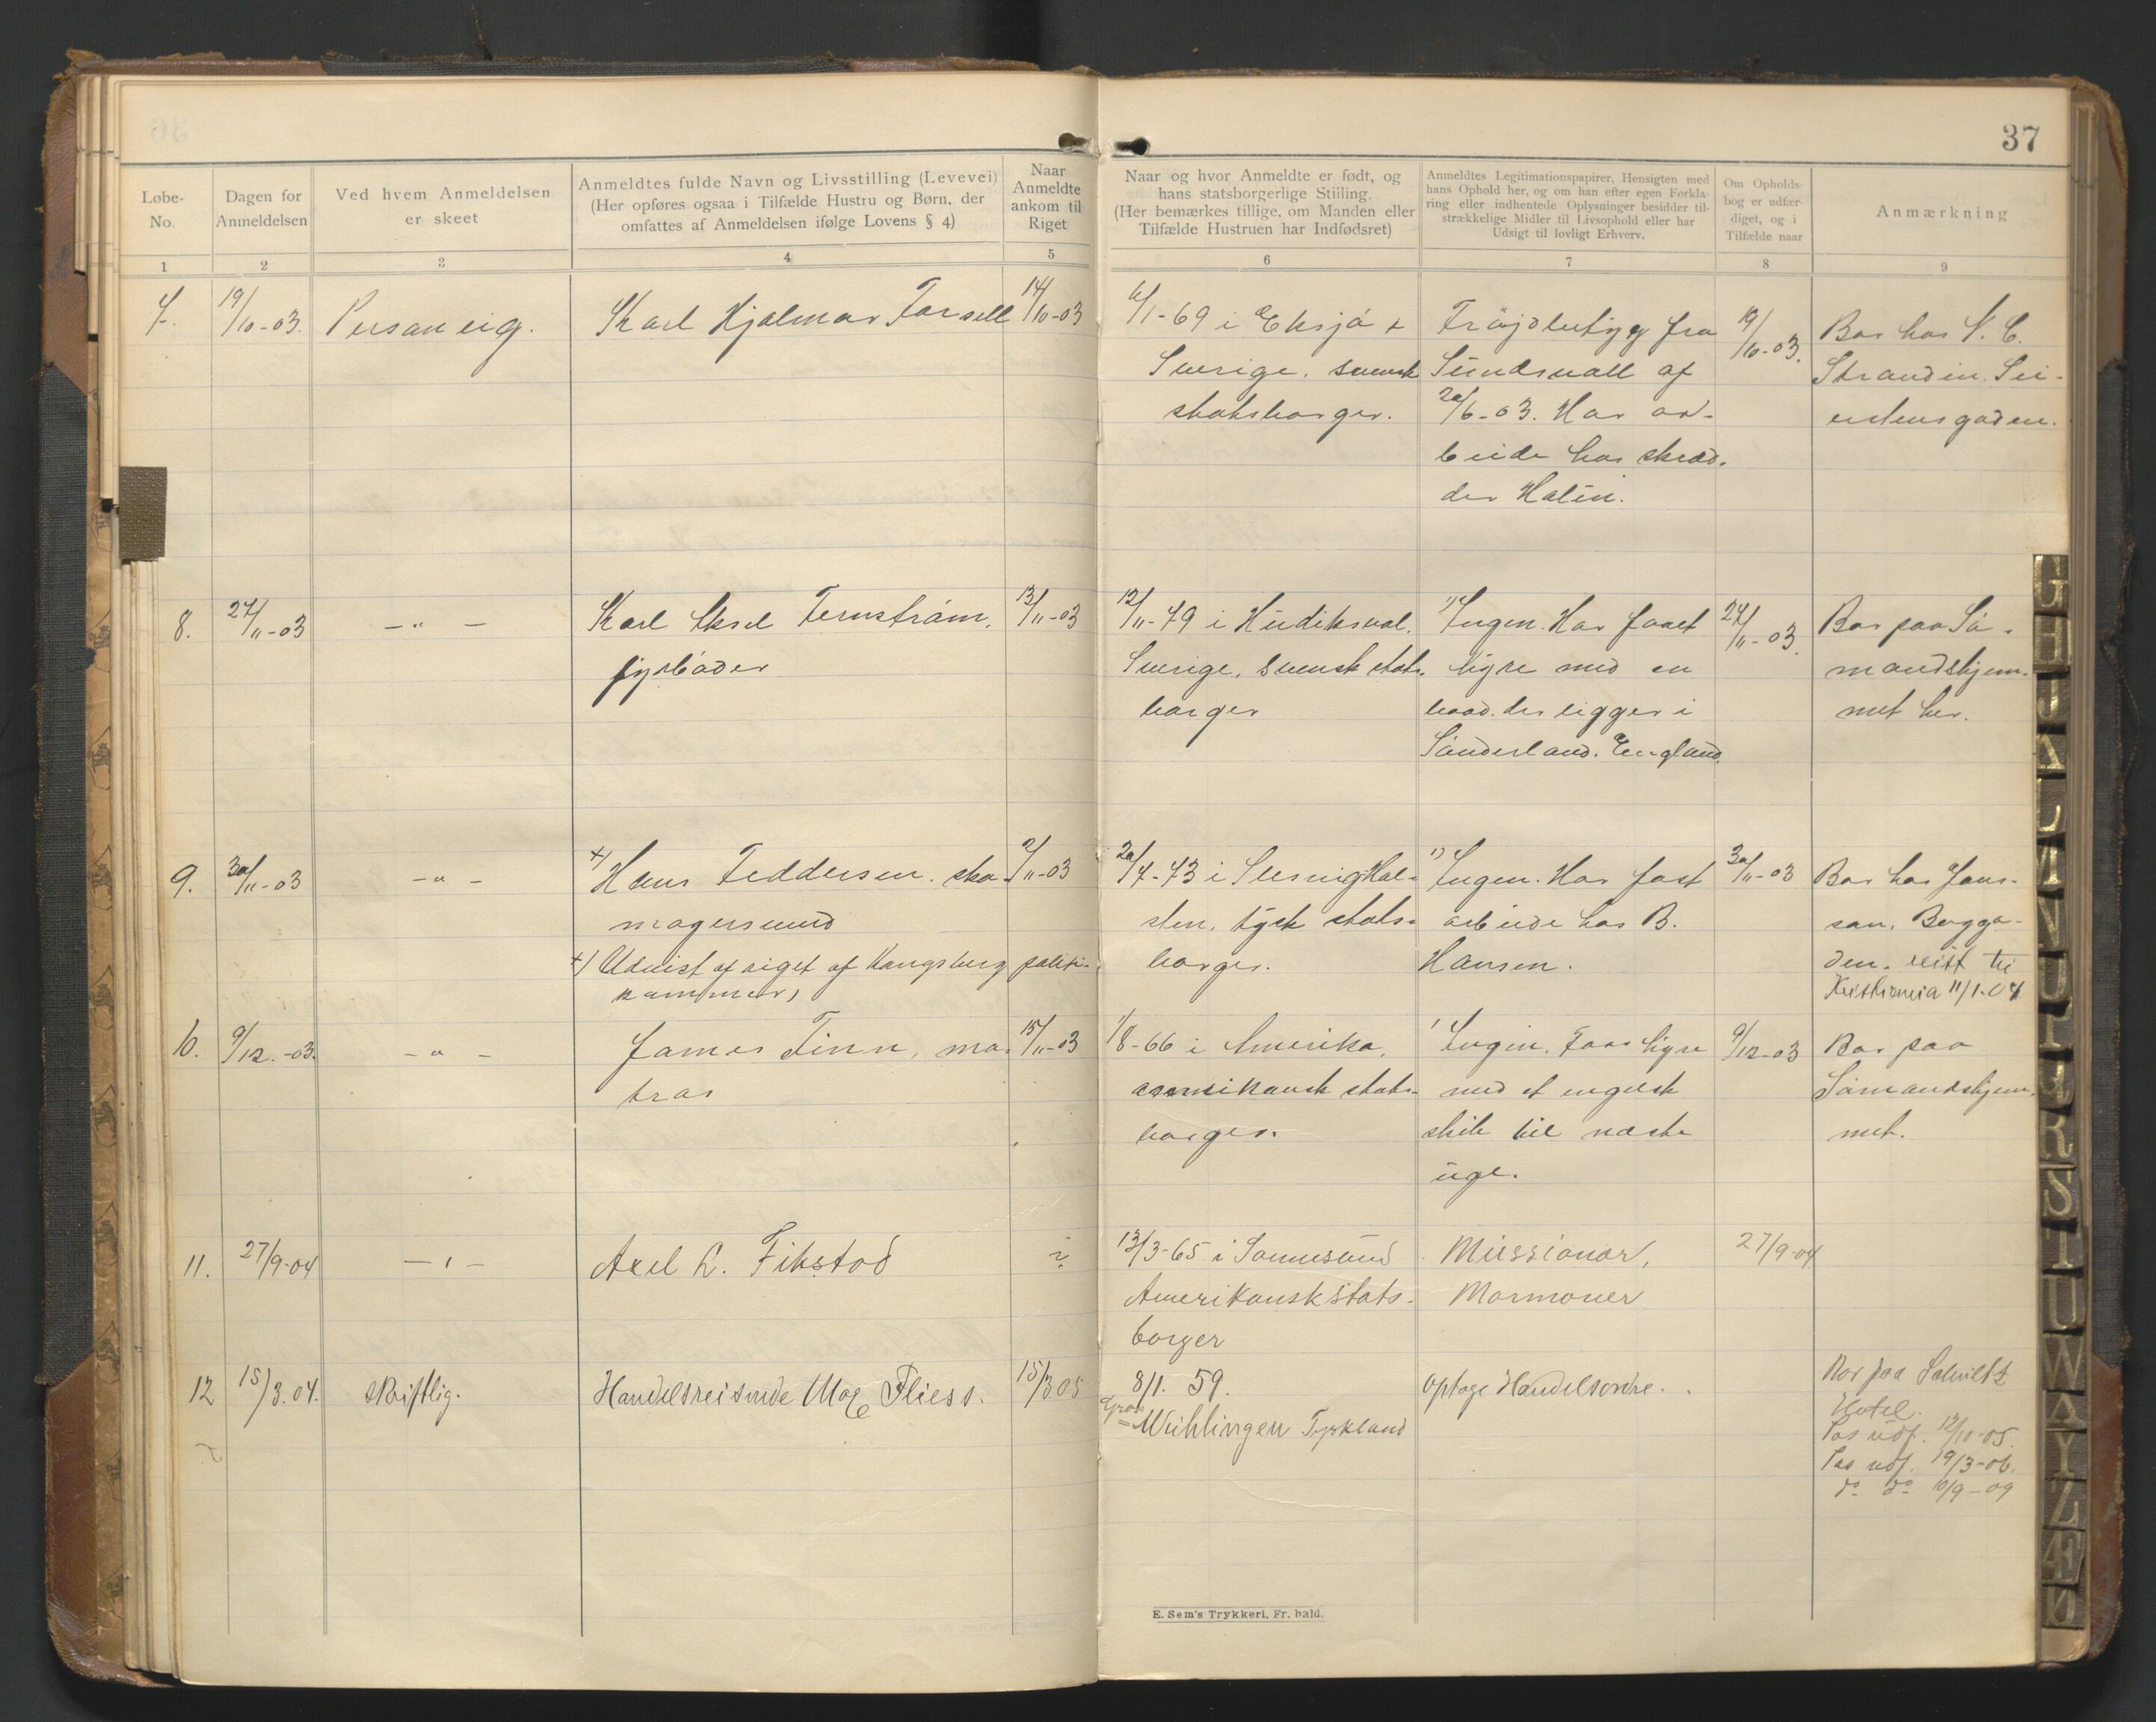 37
Løbe-
No.
Dagen for
Anmeldelsen
Ved hvem Anmeldelsen
er skeet
Anmeldtes fulde Navn og Livsstilling (Levevei)
(Her opføres ogsaa i Tilfælde Hustru og Børn, der
omfattes af Anmeldelsen ifølge Lovens § 4)
Naar
Anmeldte
ankom til
Riget
Naar og hvor Anmeldte er født, og
hans statsborgerlige Stilling.
(Her bemærkes tillige, om Manden eller
Tilfælde Hustruen har Indfødsret)
Anmeldtes Legitimationspapirer, Hensigten med
hans Ophold her, og om han efter egen Forkla-
ring eller indhentede Oplysninger besidder til-
strækkelige Midler til Livsophold eller har
Udsigt til lovligt Erhverv.
Om Opholds-
bog er udfær-
diget, og i
Tilfælde naar
Anmærkning
1 2 3 4 5 6 7 8 9
7. 19/10-03. Personlig. Karl Hjalmar Forsell 14/10-03
6/1-69 i Eksjö i
Sverige. svensk
statsborger.
Fra
Sundsvall af
20/6-03. Har ar-
beide hos skræd-
der Halin.
19/10-03.
Bor hos
Strandin.
8. 27/11-03 -"- Karl Aksel Fernström, 13/11-03
fyrbøder
12/11-79 i Hudiksval.
Sverige, svensk stats-
borger
1) Ingen. Har faaet
hyre med en
baad. der ligger i
Sunderland. England.
27/11-03.
Bor paa Sø-
mandshjem-
met her.
9. 30/11-03 -"- +) Hans Feddersen. sko- 2/11-03
magersvend
+) Udvist af riget af Kongsberg politi-
kammer,
20/4-73 i Hol-
sten, tysk stats-
borger.
1) Ingen. Har fast
arbeide hos B.
Hansen.
30/11-03
Bor hos Jons-
son, Bogga-
den. reist til
Kristiania 11/1-04
10. 9/12.-03. -"- James Finn, ma- 15/11-03
tros
1/8-66 i Amerika,
amerikansk stats-
borger.
1 Ingen. Faar hyre
med et engelsk
skib til næste
uge.
9/12-03
Bor paa
Sømandshjem-
met.
11. 27/9-04 -"- Axel L. Fikstad ?
13/3-65 i
Amerikansk stats-
borger
Missionær,
Mormoner
27/9-04
12 15/3.04. skriftlig. Handelsreisende Max Fliess. 15/3 05
8/1. 59.
Tyskland
Optage Handelsordre.
Bor paa Schultz
Hotel.
Pas udf. 12/10-05.
Pas udf. 19/3-06.
do do 10/9-09
E. Sem's Trykkeri, Fr. hald.
G
H
J
K
L
M
N
O
P
R
S
T
U
W
A
Y
Z
Æ
Ø